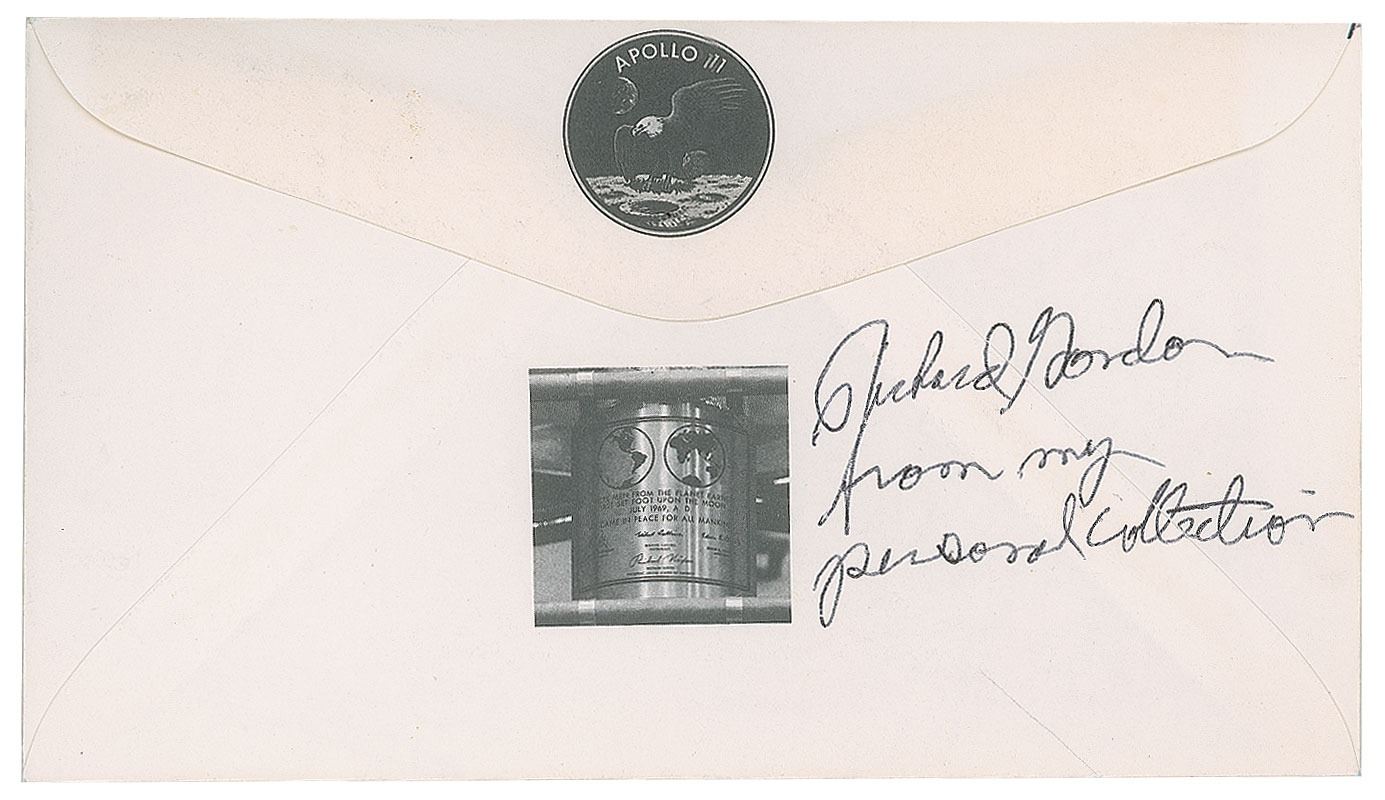 APOLLO 11
MEN FROM THE PLANET EARTH
SET FOOT UPON THE MOON
JULY 1969, A. D.
CAME IN PEACE FOR ALL MANKIND
Richard Gordon
from my
personal collection